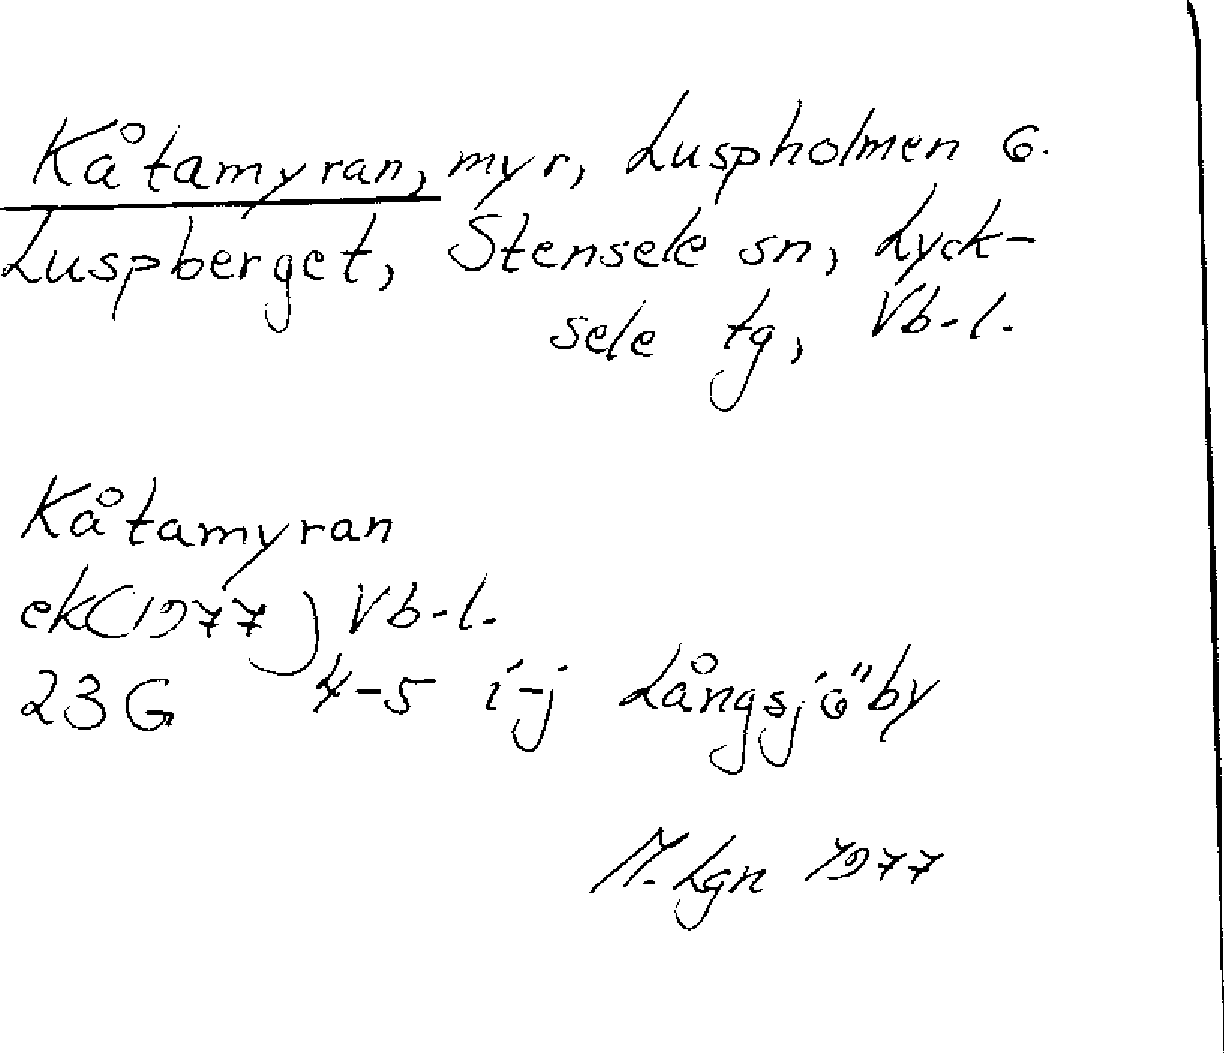 Kåtamyran, myr, Luspholmen o.
Luspberget, Stensele sn, Lyck-
sele tg, Vb-l.
Kåtamyran
ek(1977) Vb-l.
23G 4-5 i-j Långsjöby
M. Lgn 1977